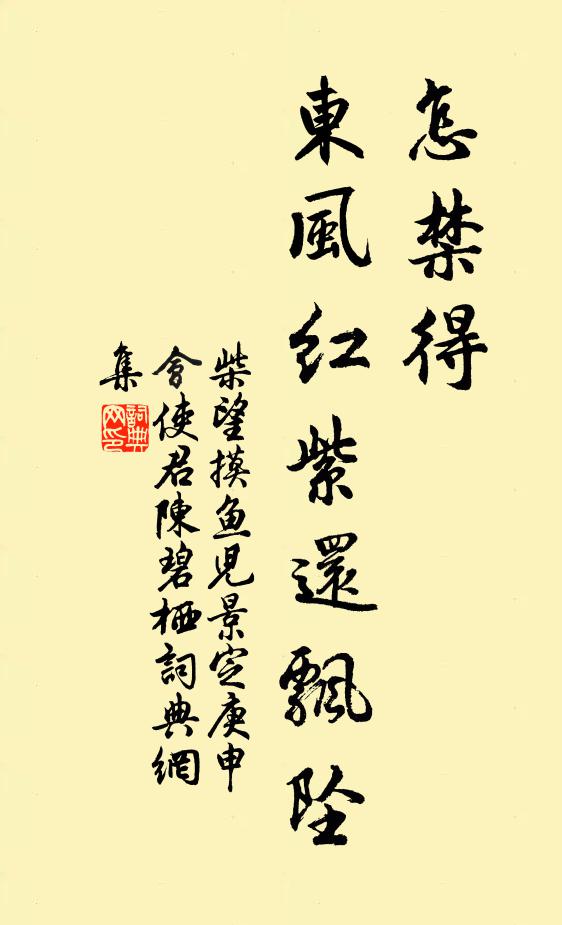 怎禁得
東風紅紫還飄墜
柴望摸魚児景定庚申
會使君陳碧栖詞典網
集
詞典
网印